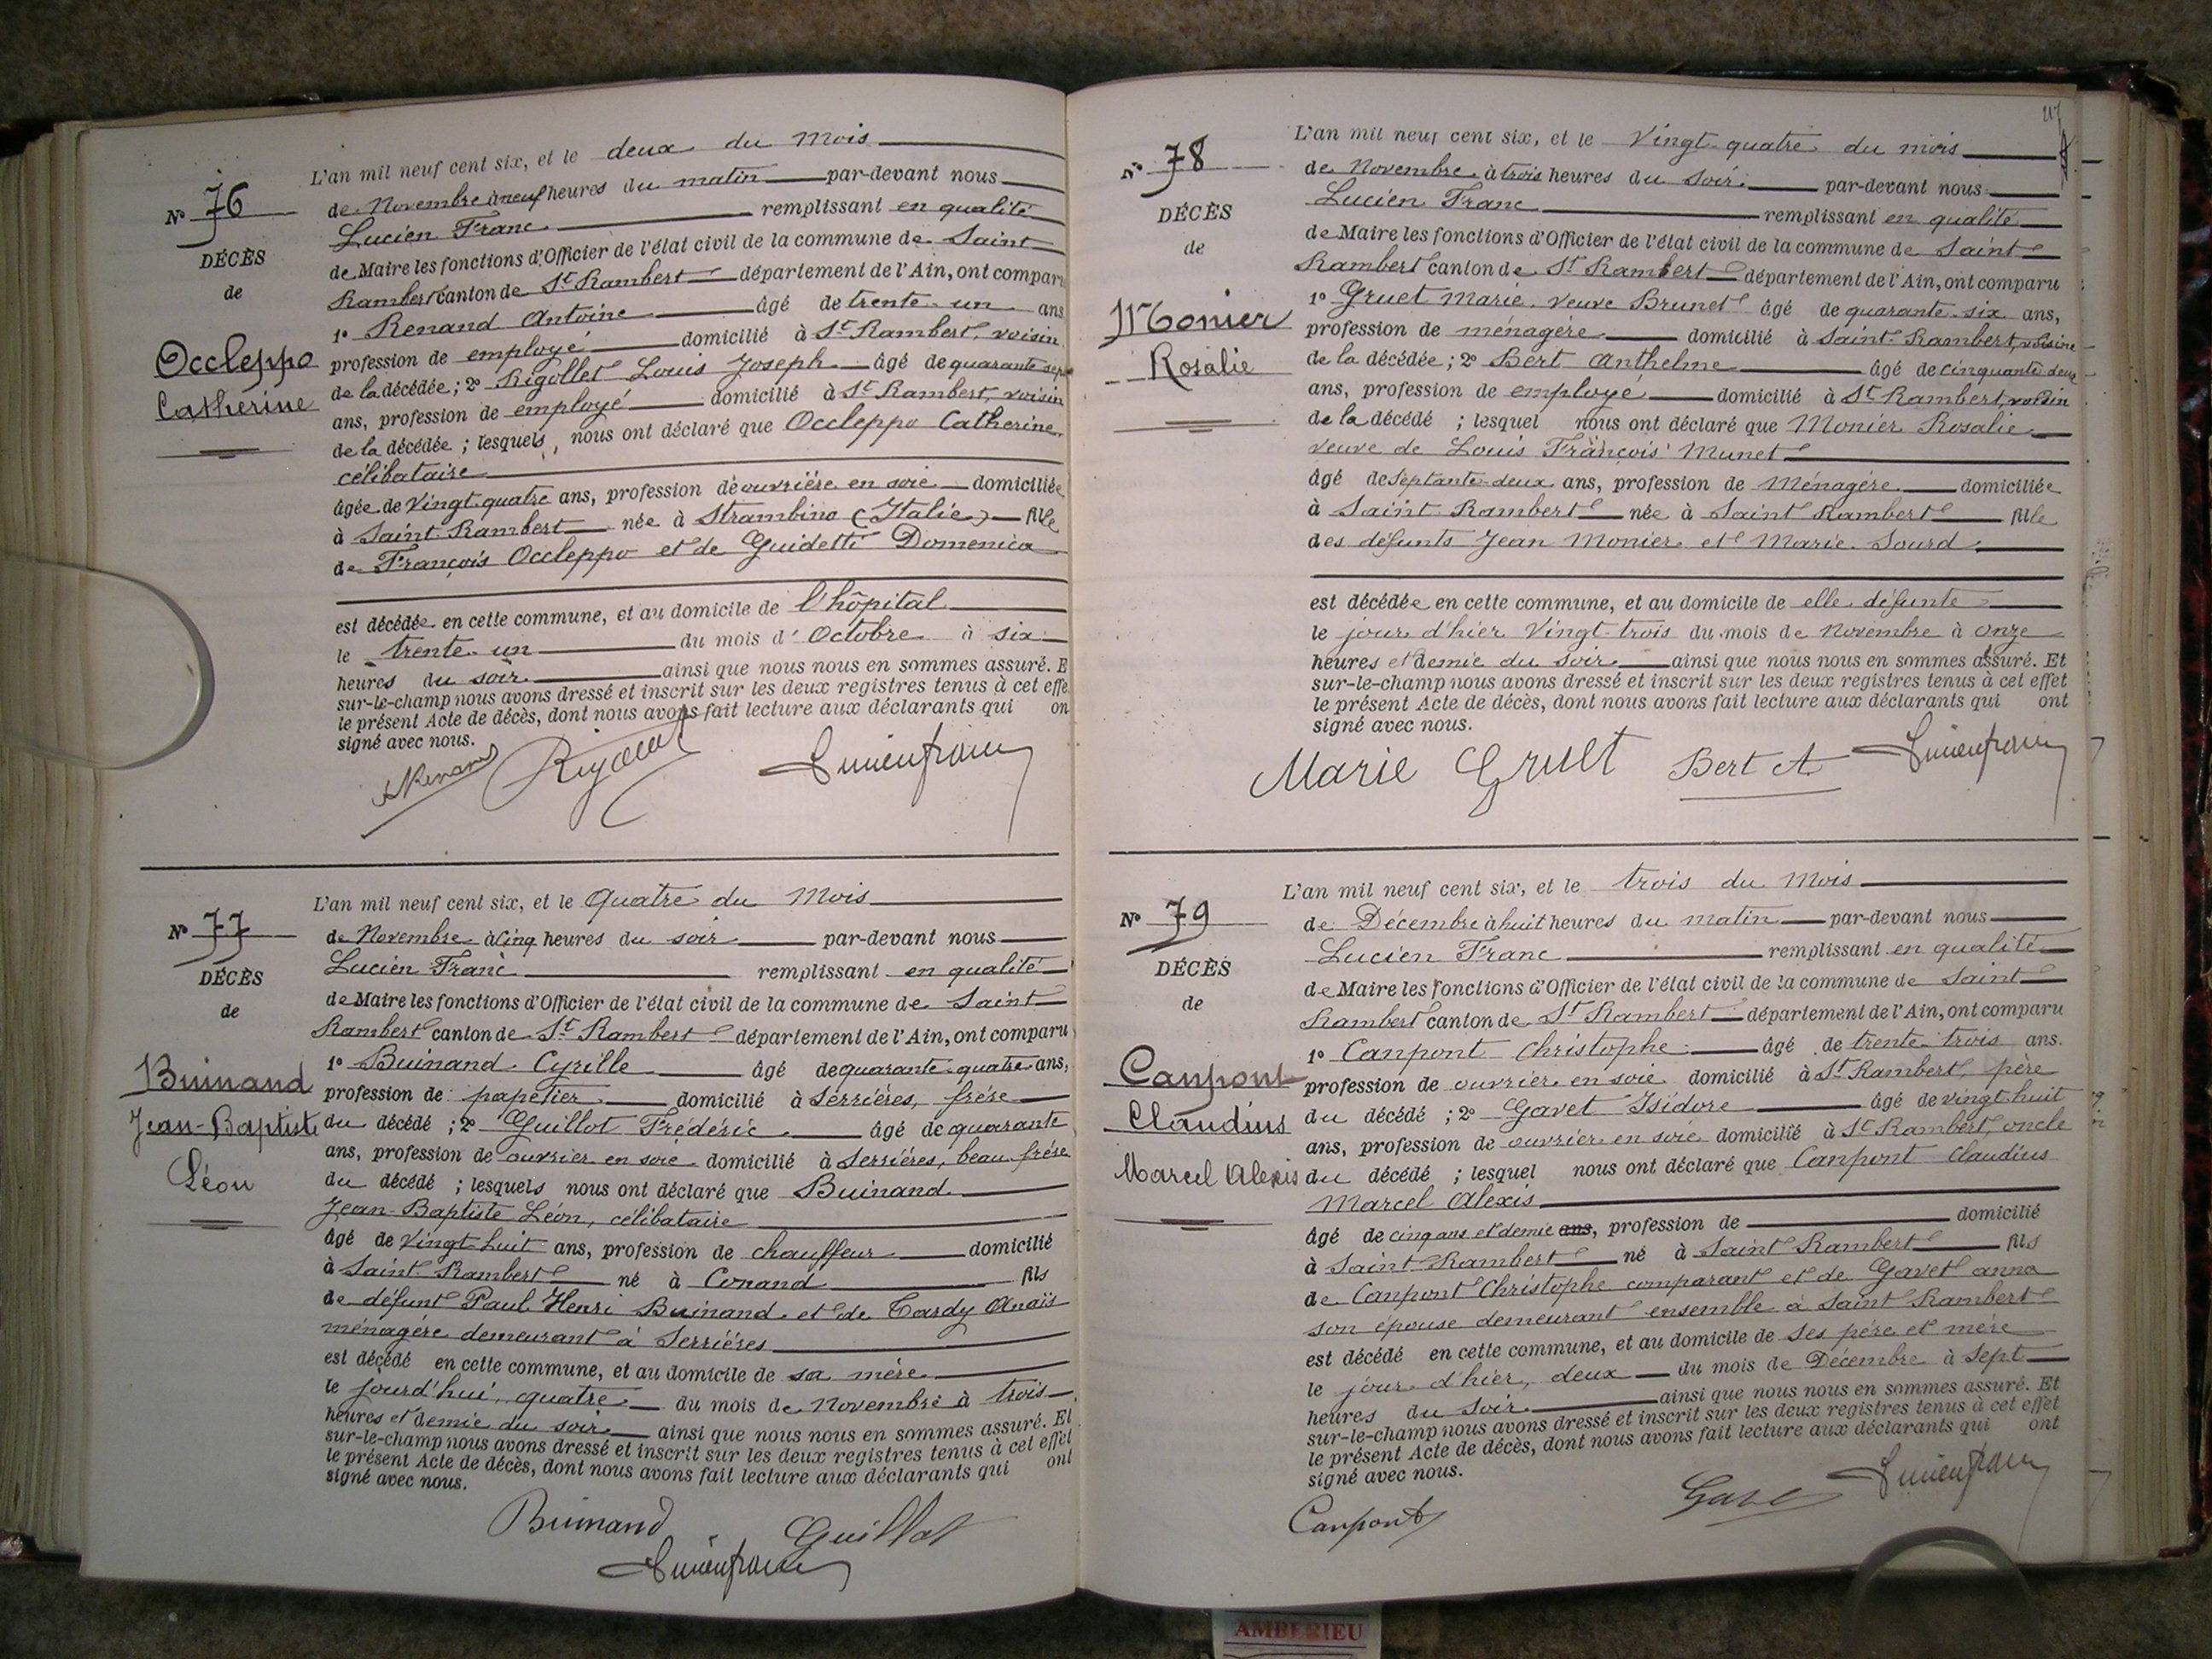 N° 76
DÉCÈS
de
Occleppo
Catherine
L'an mil neuf cent six, et le deux du mois
de Novembre à neuf heures du matin par-devant nous
Lucien Franc remplissant en qualité
de Maire les fonctions d'Officier de l'état civil de la commune de Saint
Rambert canton de St Rambert département de l'Ain, ont comparu
1° Renand Antoine âgé de trente-un ans
profession de employé domicilié à St Rambert, voisin
de la décédée ; 2° Rigollet Louis Joseph âgé de quarante sept
ans, profession de employé domicilié à St Rambert, voisin
de la décédée ; lesquels, nous ont déclaré que Occleppo Catherine
célibataire
âgée de Vingt quatre ans, profession de ouvrière en soie domiciliée
à Saint Rambert née à Strambino (Italie) fille
de François Occleppo et de Guidetti Domenica
est décédée en cette commune, et au domicile de l'hôpital
le trente-un du mois d'Octobre à six
heures du soir ainsi que nous nous en sommes assuré. E
sur-le-champ nous avons dressé et inscrit sur les deux registres tenus à cet effe
le présent Acte de décès, dont nous avons fait lecture aux déclarants qui on
signé avec nous.
ARenand Rigollet Lucien Franc
N° 77
DÉCÈS
de
Buinand
Jean-Baptiste
Léon
L'an mil neuf cent six, et le quatre du Mois
de Novembre à Cinq heures du soir par-devant nous
Lucien Franc remplissant en qualité
de Maire les fonctions d'Officier de l'état civil de la commune de Saint
Rambert canton de St Rambert département de l'Ain, ont comparu
1° Buinand Cyrille âgé de quarante-quatre ans,
profession de papetier domicilié à Serrières, frère
du décédé ; 2° Guillot Frédéric âgé de quarante
ans, profession de ouvrier en soie domicilié à Serrières, beau frère
du décédé ; lesquels nous ont déclaré que Buinand
Jean-Baptiste Léon, célibataire
âgé de vingt huit ans, profession de chauffeur domicilié
à Saint Rambert né à Conand fils
de défunt Paul Henri Buinand et de Tardy Anaïs
ménagère demeurant à Serrières
est décédé en cette commune, et au domicile de sa mère
le jourd'hui quatre du mois de Novembre à trois
heures et demie du soir ainsi que nous nous en sommes assuré. Et
sur-le-champ nous avons dressé et inscrit sur les deux registres tenus à cet effet
le présent Acte de décès, dont nous avons fait lecture aux déclarants qui ont
signé avec nous.
Buinand Guillot
Lucien Franc
N° 78
DÉCÈS
de
Monier
Rosalie
L'an mil neuf cent six, et le Vingt-quatre du mois
de Novembre à trois heures du soir par-devant nous
Lucien Franc remplissant en qualité
de Maire les fonctions d'Officier de l'état civil de la commune de Saint
Rambert canton de St Rambert département de l'Ain, ont comparu
1° Gruet Marie veuve Brunet âgé de quarante-six ans,
profession de ménagère domicilié à Saint-Rambert, voisine
de la décédée ; 2° Bert Anthelme âgé de cinquante deux
ans, profession de employé domicilié à St Rambert, voisin
de la décédé ; lesquel nous ont déclaré que Monier Rosalie
veuve de Louis François Munet
âgé de septante-deux ans, profession de Ménagère domiciliée
à Saint Rambert née à Saint Rambert fille
des défunts Jean Monier et Marie Sourd
est décédée en cette commune, et au domicile de elle défunte
le jour d'hier Vingt-trois du mois de Novembre à onze
heures et demie du soir ainsi que nous nous en sommes assuré. Et
sur-le-champ nous avons dressé et inscrit sur les deux registres tenus à cet effet
le présent Acte de décès, dont nous avons fait lecture aux déclarants qui ont
signé avec nous.
Marie Gruet Bert A Lucien Franc
N° 79
DÉCÈS
de
Canpont
Claudius
Marcel Alexis
L'an mil neuf cent six, et le trois du Mois
de Décembre à huit heures du matin par-devant nous
Lucien Franc remplissant en qualité
de Maire les fonctions d'Officier de l'état civil de la commune de Saint
Rambert canton de St Rambert département de l'Ain, ont comparu
1° Canpont Christophe âgé de trente-trois ans.
profession de ouvrier en soie domicilié à St Rambert, père
du décédé ; 2° Gavet Isidore âgé de vingt huit
ans, profession de ouvrier en soie domicilié à St Rambert, oncle
du décédé ; lesquel nous ont déclaré que Canpont Claudius
Marcel Alexis
âgé de cinq ans et demie ans, profession de domicilié
à Saint Rambert né à Saint Rambert fils
de Canpont Christophe comparant et de Gavet anna
son épouse demeurant ensemble à Saint Rambert
est décédé en cette commune, et au domicile de ses père et mère
le jour d'hier, deux du mois de Décembre à sept
heures du soir ainsi que nous nous en sommes assuré. Et
sur-le-champ nous avons dressé et inscrit sur les deux registres tenus à cet effet
le présent Acte de décès, dont nous avons fait lecture aux déclarants qui ont
signé avec nous.
Canpont Gavet Lucien Franc
AMBERIEU